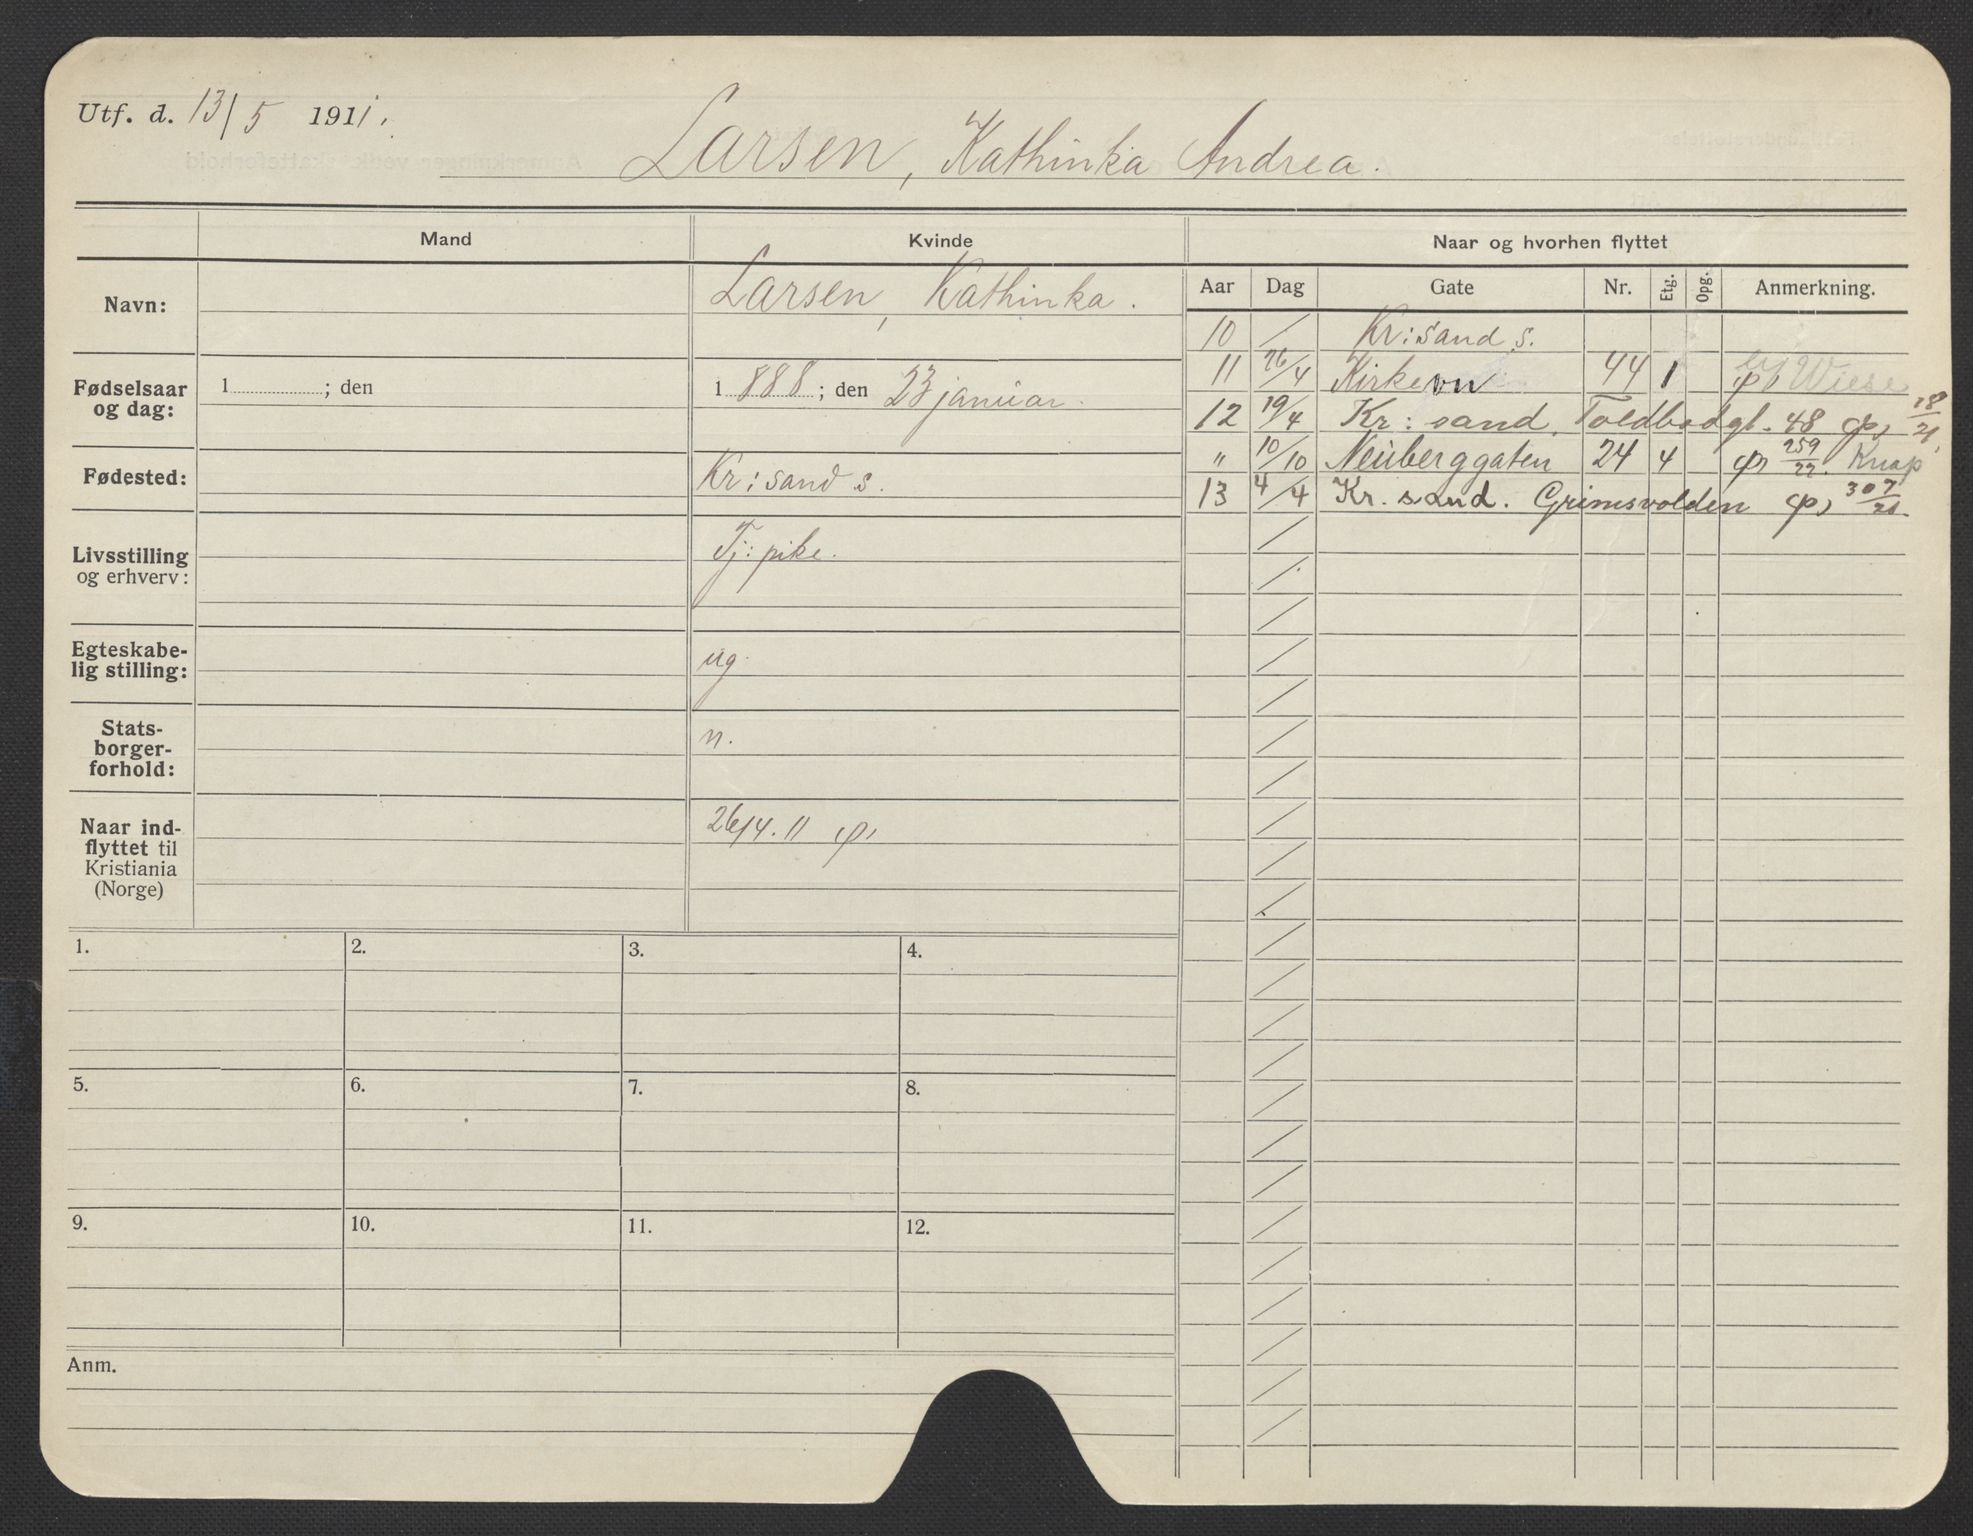 Utf. d. 13/5 1911.
Larsen, Kathinka Andrea.
Mand Kvinde Naar og hvorhen flyttet
Aar Dag Gate Nr. Etg. Opg. Anmerkning.
Navn: Larsen, Kathinka.
Fødselsaar og dag: 1 ; den 1888; den 23 januar.
Fødested: Kr: sand s.
Livsstilling og erhverv: Tj: pike.
Egteskabe-
lig stilling: ug.
Stats-
borger-
forhold: n.
Naar ind-
flyttet til
Kristiania
(Norge) 26/4. 11
10 / Kr: sand s.
11 26/4 Kirkevn 44 1 Wiese
12 19/4 Kr: sand. Toldbodgt. 48 18/21
" 10/10 Neuberggaten 24 4 259/22. Knap
13 4/4 Kr. sand. Grimsvolden 307/21.
1. 2. 3. 4.
5. 6. 7. 8.
9. 10. 11. 12.
Anm.